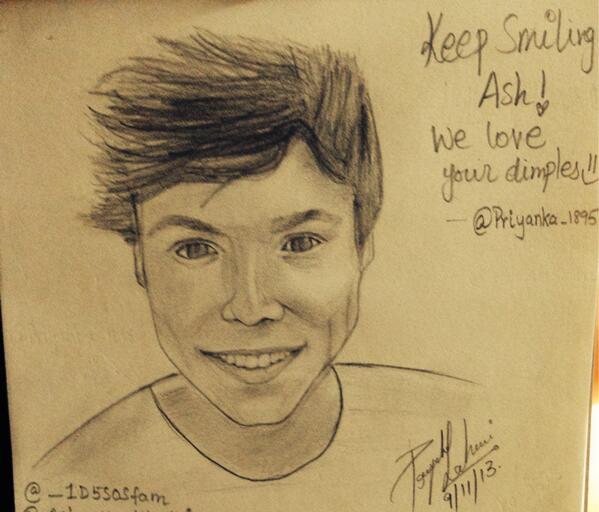 Keep Smiling
Ash!
We love
your dimples!!
- @Priyanka_1895
@_1D5SOSfam
9/11/13.